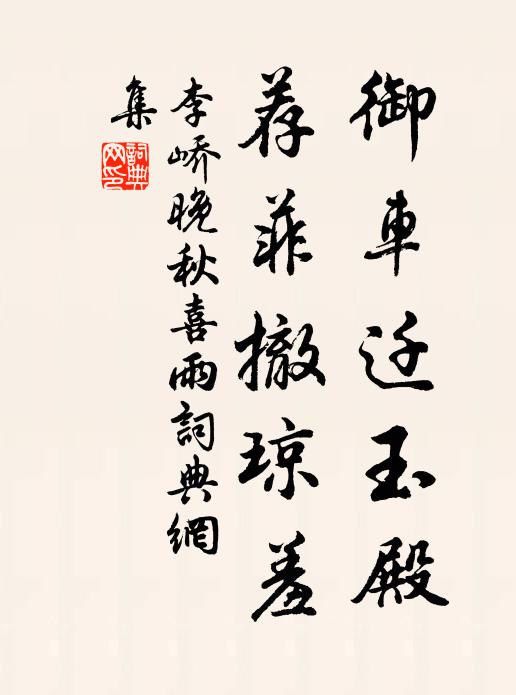 御車迁玉殿
荐菲撤琼羞
李嶠晚秋喜雨詞典網
集
詞典
网印